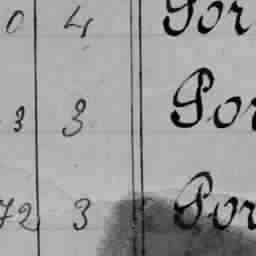 0 4 Por
3 3 Por
72 3 Por